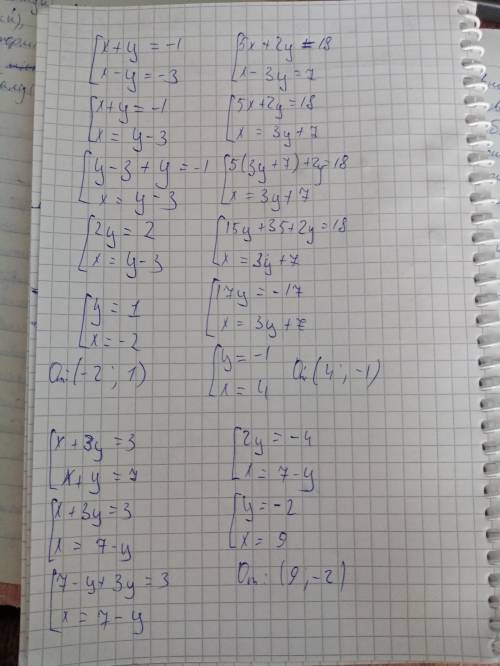 {x+y = -1
x-y = -3
{x+y = -1
x = y-3
{y-3+y = -1
x = y-3
{2y = 2
x = y-3
{y = 1
x = -2
От: (-2; 1)
{5x+2y = 18
x-3y = 7
{5x+2y = 18
x = 3y+7
{5(3y+7)+2y=18
x = 3y+7
{15y+35+2y=18
x = 3y+7
{17y = -17
x = 3y+7
{y = -1
x = 4
От: (4; -1)
{x+3y = 3
x+y = 7
{x+3y = 3
x = 7-y
{7-y+3y = 3
x = 7-y
{2y = -4
x = 7-y
{y = -2
x = 9
От: (9, -2)